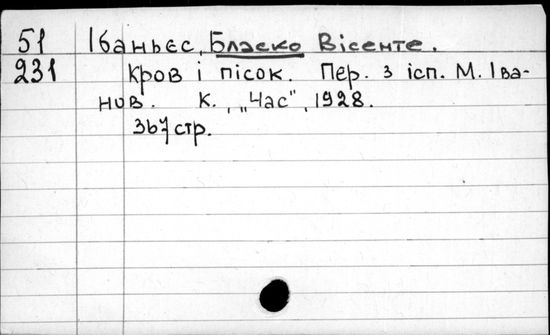 51 Ібаньєс, Бласко Вісенте.
231 Кров і пісок. Пер. з ісп. М. Іва-
нов. К., „Час", 1928.
367 стр.